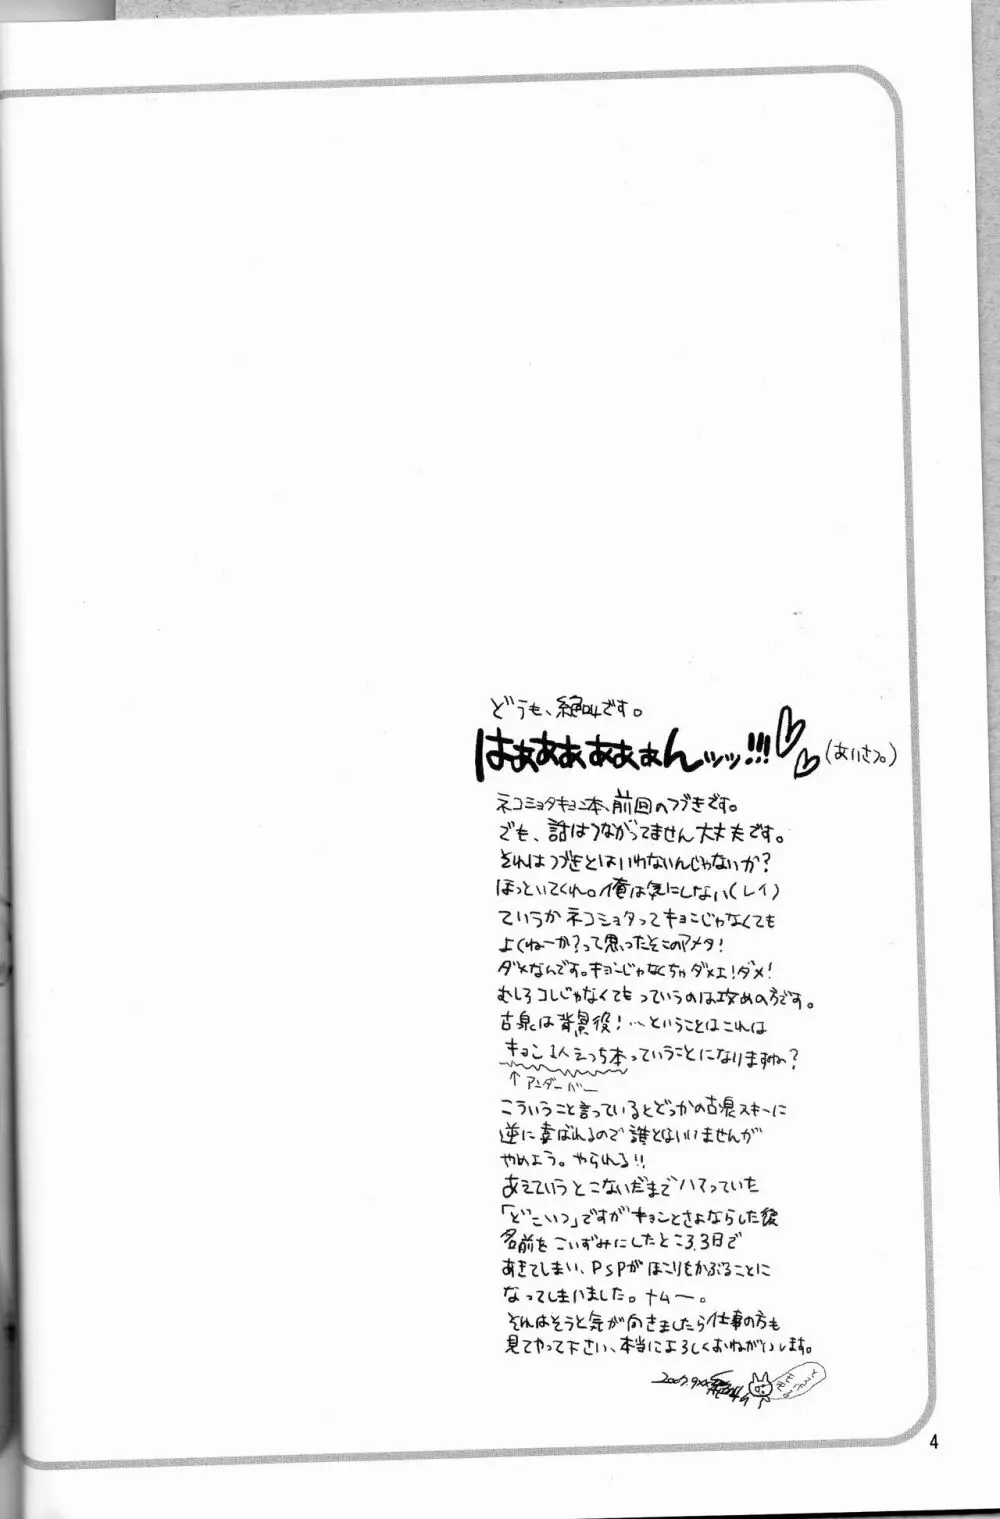 どうも、絶叫です。
はぁぁぁぁぁぁんッッ!!! (あいさつ。)
ネコショタキョン本、前回のつづきです。
でも、話はつながってません大丈夫です。
それはつづきとはいわないんじゃないか?
ほっといてくれ。俺は気にしない(レイ)
ていうかネコショタってキョンじゃなくても
よくねーか?って思ったそこのアメタ!
ダメなんです。キョンじゃなくちゃダメェ!ダメ!
むしろコレじゃなくてもっていうのは攻めの方です。
古泉は背景役!…ということはこれは
キョン1人えっち本っていうことになりますね?
↑アンダーバー
こういうこと言っているとどっかの古泉スキーに
逆に喜ばれるので誰とはいいませんが
やめよう。やられる!!
あえていうとこないだまでハマっていた
「どこいつ」ですがキョンとさよならした後
名前をこいずみにしたところ3日で
あきてしまい、PSPがほこりをかぶることに
なってしまいました。ナムー。
それはそうと気が向きましたら仕事の方も
見てやって下さい、本当によろしくおねがいします。
4